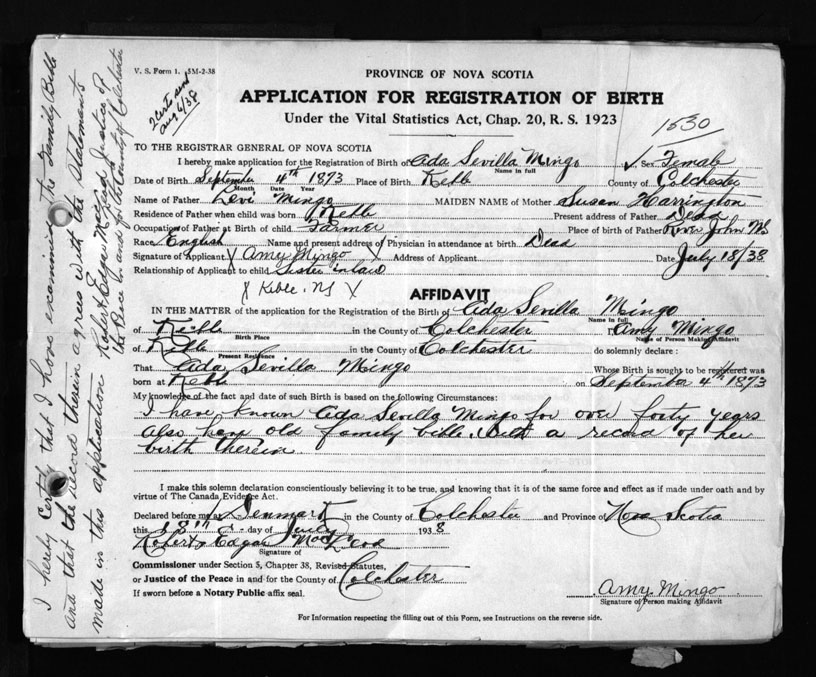 V. S. Form 1. 5M-2-38
2 Certs sent
Aug 4/38
PROVINCE OF NOVA SCOTIA
APPLICATION FOR REGISTRATION OF BIRTH
Under the Vital Statistics Act, Chap. 20, R. S. 1923
1530
TO THE REGISTRAR GENERAL OF NOVA SCOTIA
I hereby make application for the Registration of Birth of Ada Sevilla Mingo Sex Female
Name in full
Date of Birth September 4th 1873 Place of Birth Kebb County of Colchester
Month Date Year
Name of Father Levi Mingo MAIDEN NAME of Mother Susan Harrington
Residence of Father when child was born Kebb Present address of Father Dead
Occupation of Father at Birth of child Farmer Place of birth of Father River John NS
Race English Name and present address of Physician in attendance at birth Dead
Signature of Applicant X Amy Mingo X Address of Applicant Date July 18/38
Relationship of Applicant to child Sister inlaw
X Keble. NS X
AFFIDAVIT
IN THE MATTER of the application for the Registration of the Birth of Ada Sevilla Mingo
Name in full
of Kebb in the County of Colchester I, Amy Mingo
Birth Place Name of Person Making Affidavit
of Kebb in the County of Colchester do solemnly declare :
Present Residence
That Ada Sevilla Mingo Whose Birth is sought to be registered was
born at Kebb on September 4th 1873
My knowledge of the fact and date of such Birth is based on the following Circumstances:
I have known Ada Sevilla Mingo for over forty years
also have old family bible. With a record of her
birth therein.
I make this solemn declaration conscientiously believing it to be true, and knowing that it is of the same force and effect as if made under oath and by
virtue of The Canada Evidence Act.
Declared before me at Denmark in the County of Colchester and Province of Nova Scotia
this 18th day of July 1938
Robert Edgar MacLeod
Signature of
Commissioner under Section 5, Chapter 38, Revised Statutes,
or Justice of the Peace in and for the County of Colchester
If sworn before a Notary Public affix seal.
Amy Mingo
Signature of Person making Affidavit
For Information respecting the filling out of this Form, see Instructions on the reverse side.
I hereby certify that I have examined the Family Bible
and that the record therein agrees with the statements
made in this application Robert Edgar McLeod Justice of
the Peace in and for the County of Colchester